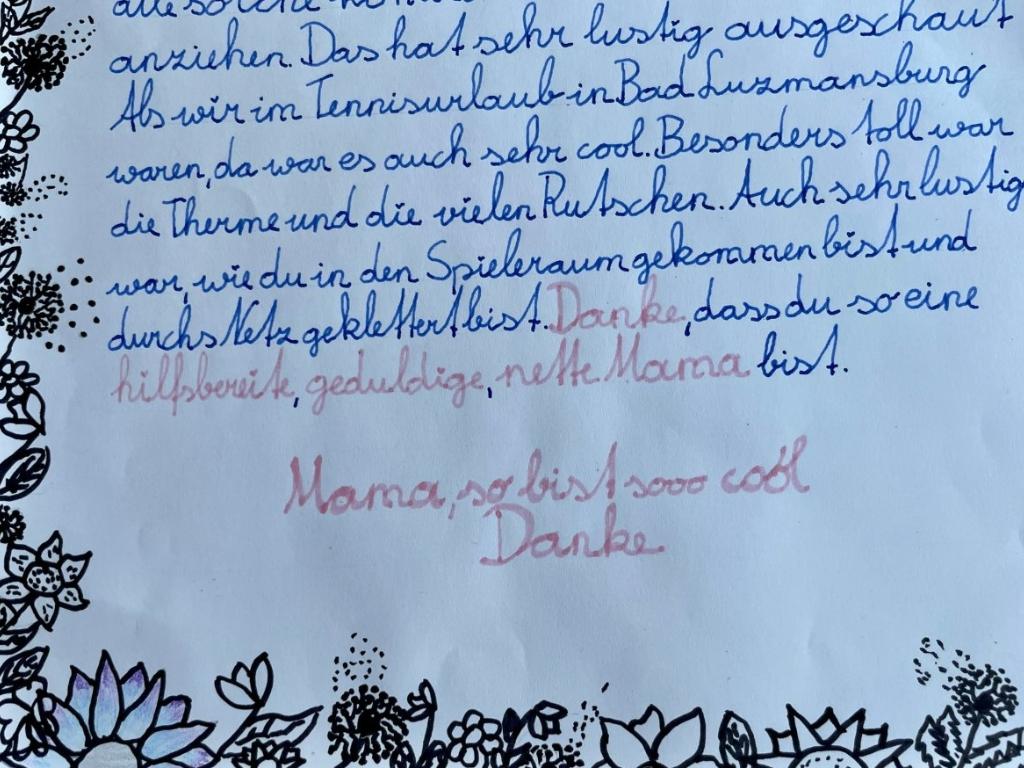 alle solche
anziehen. Das hat sehr lustig ausgeschaut
Als wir im Tennisurlaub in Bad Luzmansburg
waren, da war es auch sehr cool. Besonders toll war
die Therme und die vielen Rutschen. Auch sehr lustig
war, wie du in den Spieleraum gekommen bist und
durchs Netz geklettert bist. Danke, dass du so eine
hilfsbereite, geduldige, nette Mama bist.
Mama, so bist sooo cool
Danke